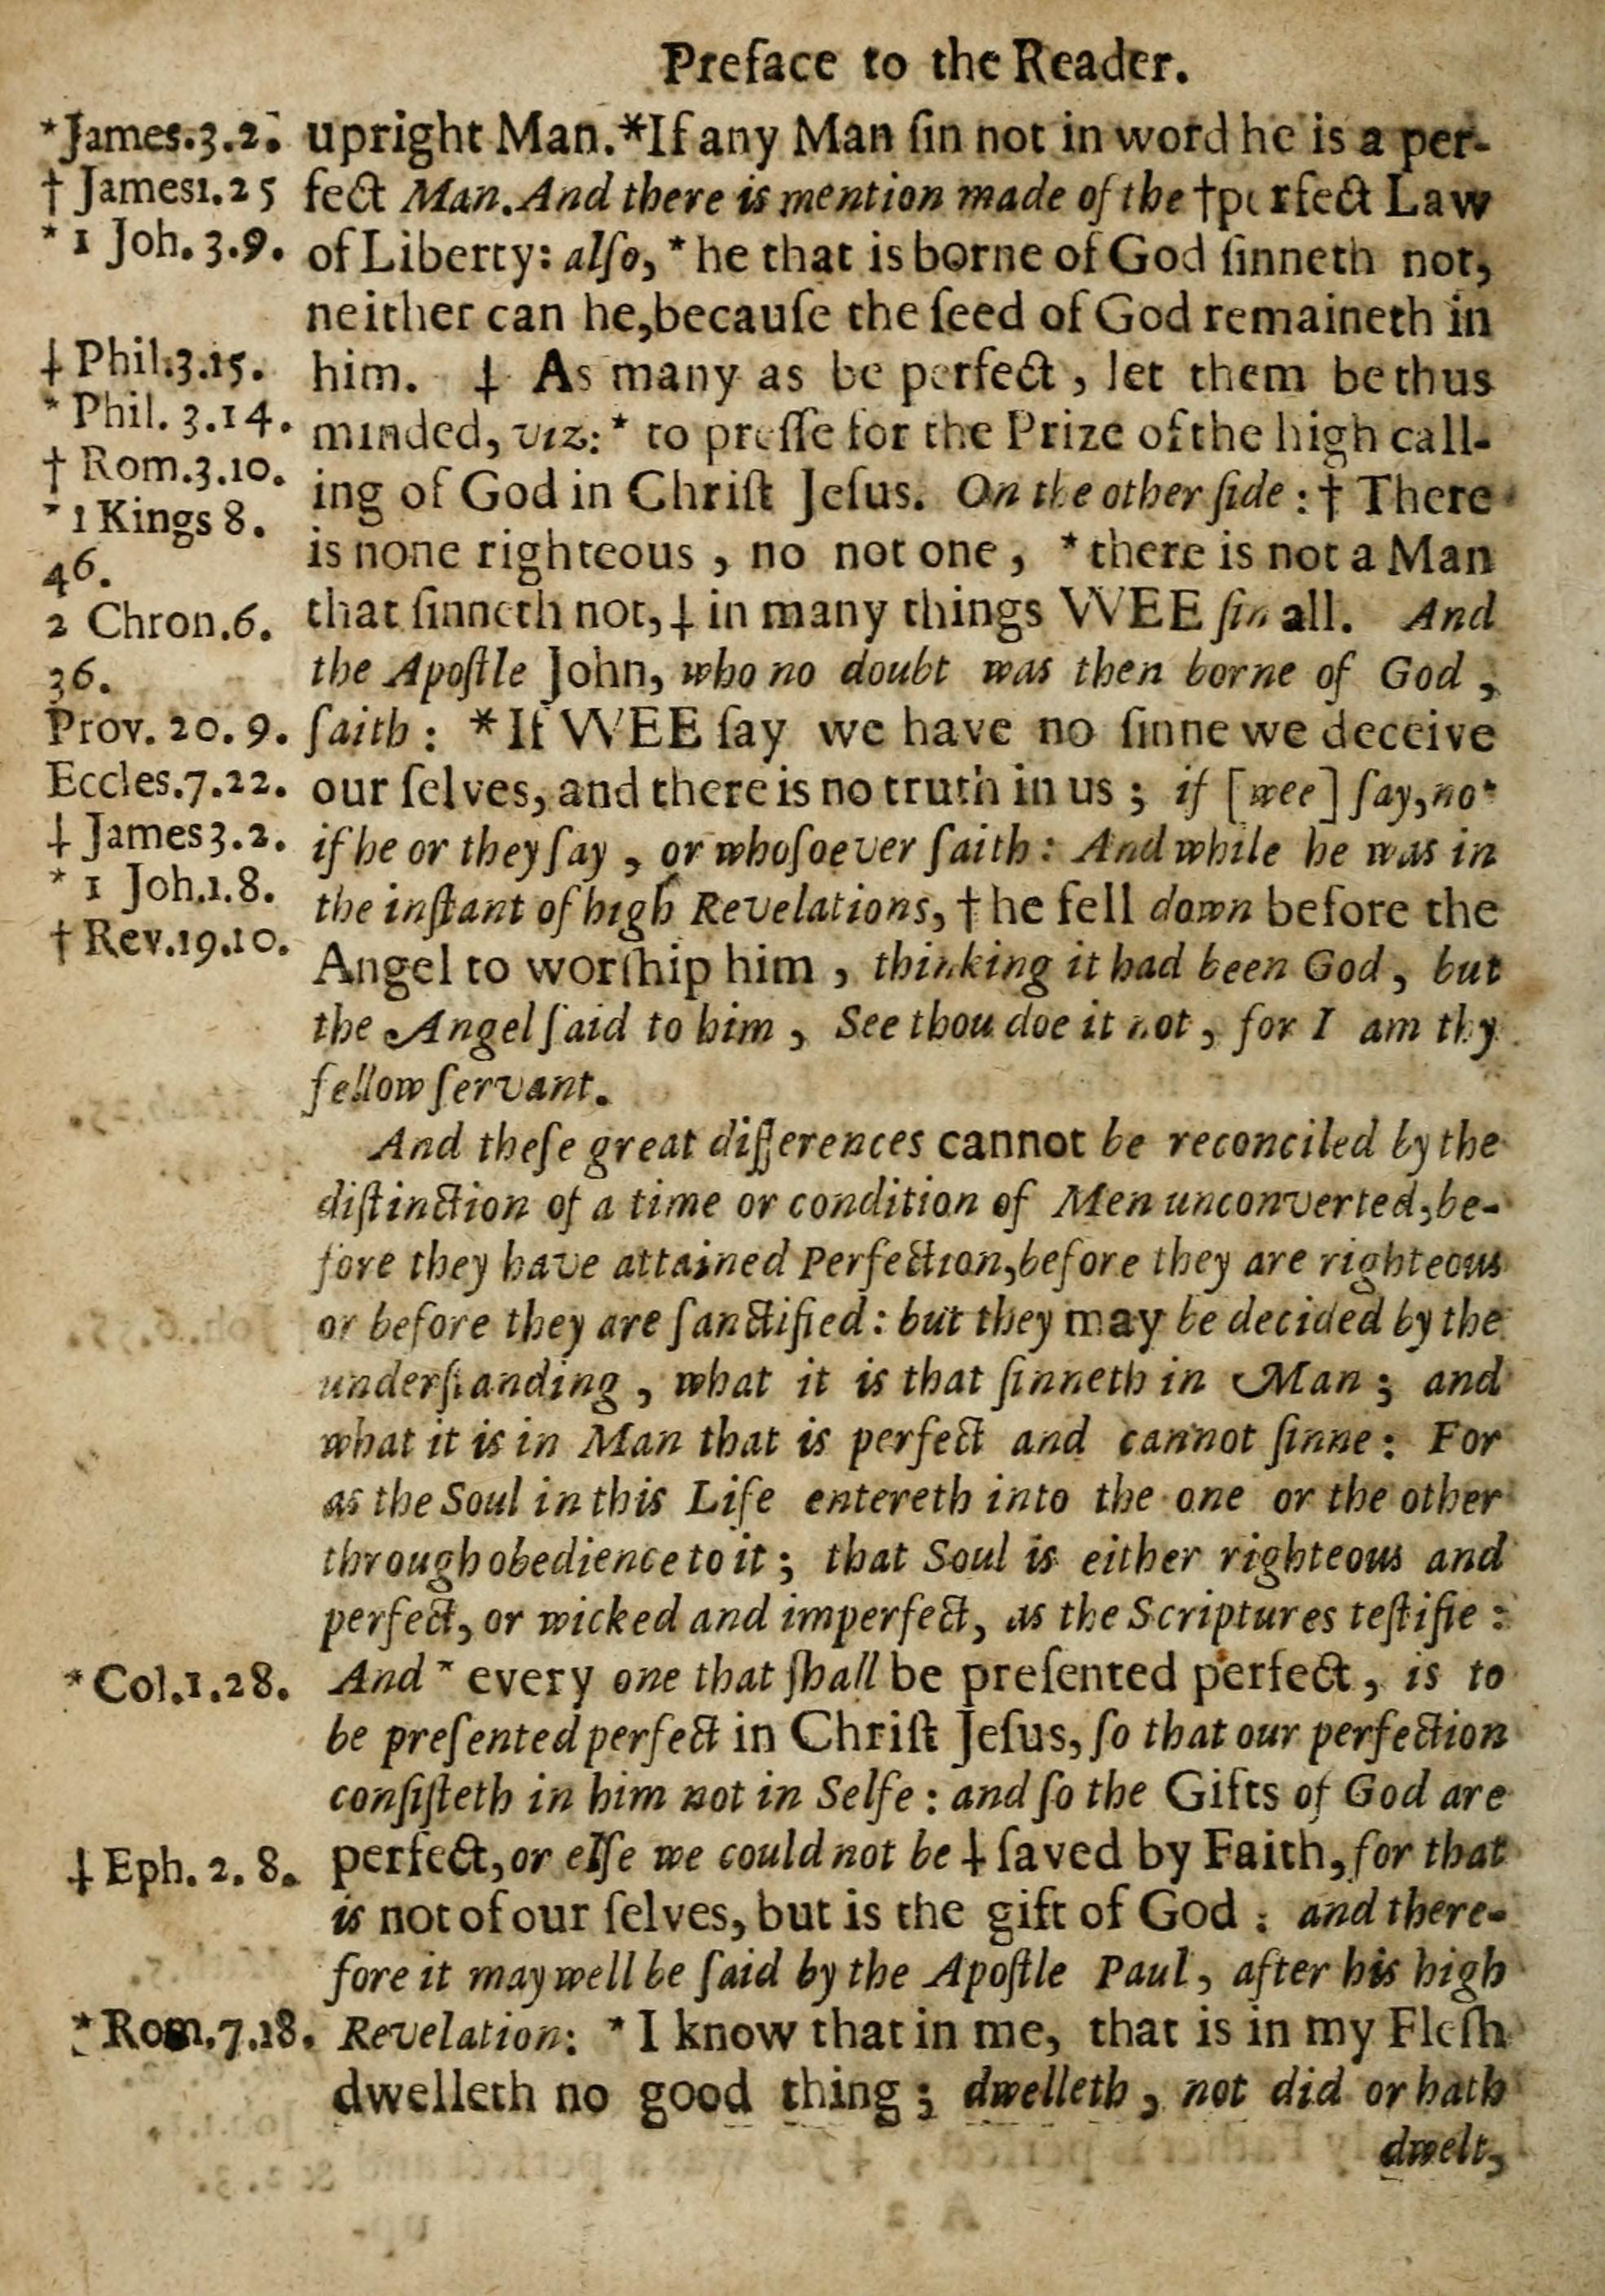 Preface to the Reader.
*James.3.2.
† James1.25
* 1 Joh. 3.9.
‡ Phil.3.15.
* Phil. 3.14.
† Rom.3.10.
* 1 Kings 8.
46.
2 Chron.6.
36.
Prov. 20. 9.
Eccles.7.22.
‡ James 3.2.
* 1 Joh.1.8.
† Rev.19.10.
upright Man.*If any Man ſin not in word he is a per-
fect Man. And there is mention made of the †perfect Law
of Liberty: alſo, * he that is borne of God ſinneth not,
neither can he,becauſe the ſeed of God remaineth in
him. ‡ As many as be perfect , let them be thus
minded, viz: * to preſſe for the Prize of the high call-
ing of God in Chriſt Jeſus. On the other ſide : † There
is none righteous , no not one , * there is not a Man
that ſinneth not, ‡ in many things WEE ſin all. And
the Apoſtle John, who no doubt was then borne of God ,
ſaith : * If WEE ſay we have no ſinne we deceive
our ſelves, and there is no truth in us ; if [wee] ſay, not
if he or they ſay , or whoſoever ſaith : And while he was in
the inſtant of high Revelations, † he fell down before the
Angel to worſhip him , thinking it had been God , but
the Angel ſaid to him , See thou doe it not , for I am thy
fellow ſervant.
And theſe great differences cannot be reconciled by the
diſtinction of a time or condition of Men unconverted, be-
fore they have attained Perfection,before they are righteous
or before they are ſanctified : but they may be decided by the
underſtanding , what it is that ſinneth in Man ; and
what it is in Man that is perfect and cannot ſinne : For
as the Soul in this Life entereth into the one or the other
through obedience to it ; that Soul is either righteous and
perfect, or wicked and imperfect, as the Scriptures teſtifie :
*Col.1.28. And * every one that ſhall be preſented perfect , is to
be preſented perfect in Chriſt Jeſus, ſo that our perfection
conſiſteth in him not in Selfe : and ſo the Gifts of God are
‡ Eph. 2. 8. perfect, or elſe we could not be ‡ ſaved by Faith, for that
is not of our ſelves, but is the gift of God : and there-
fore it may well be ſaid by the Apoſtle Paul , after his high
*Rom.7.18. Revelation: * I know that in me, that is in my Fleſh
dwelleth no good thing ; dwelleth , not did or hath
dwelt,